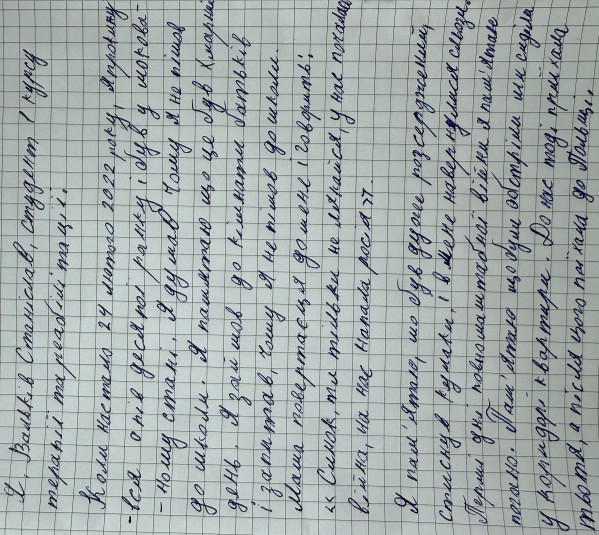 Я, Вальків Станіслав, студент 1 курсу
терапії та реабілітації.
Коли настало 24 лютого 2022 року, я прокину-
-вся о пів десятої ранку і був у шокова-
-ному стані. Я думав чому я не пішов
до школи. Я памятаю що це був хмарний
день. Я зайшов до кімнати батьків
і запитав, чому я не пішов до школи.
Мама повертаєця до мене і говорить:
«Синок, ти тільки не лякайся, у нас почалась
війна, на нас напала росія».
Я пам'ятаю, що був дуже розсерджений,
стиснув кулаки, і в мене навернулися сльози.
Перші дні повномаштабної війни я пам'ятаю
погано. Пам'ятаю що були обстріли ми сиділи
у коридорі квартири. До нас тоді приїхала
тьотя, а після цього поїхала до Польщі.